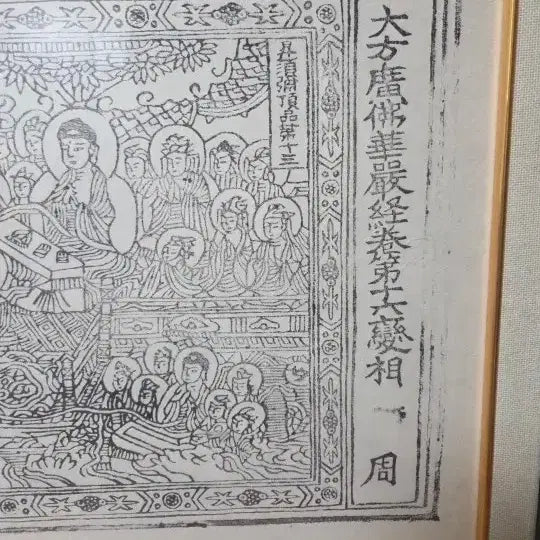 大方廣佛華嚴経卷第十六變相 一 周
昇須弥頂品第十三